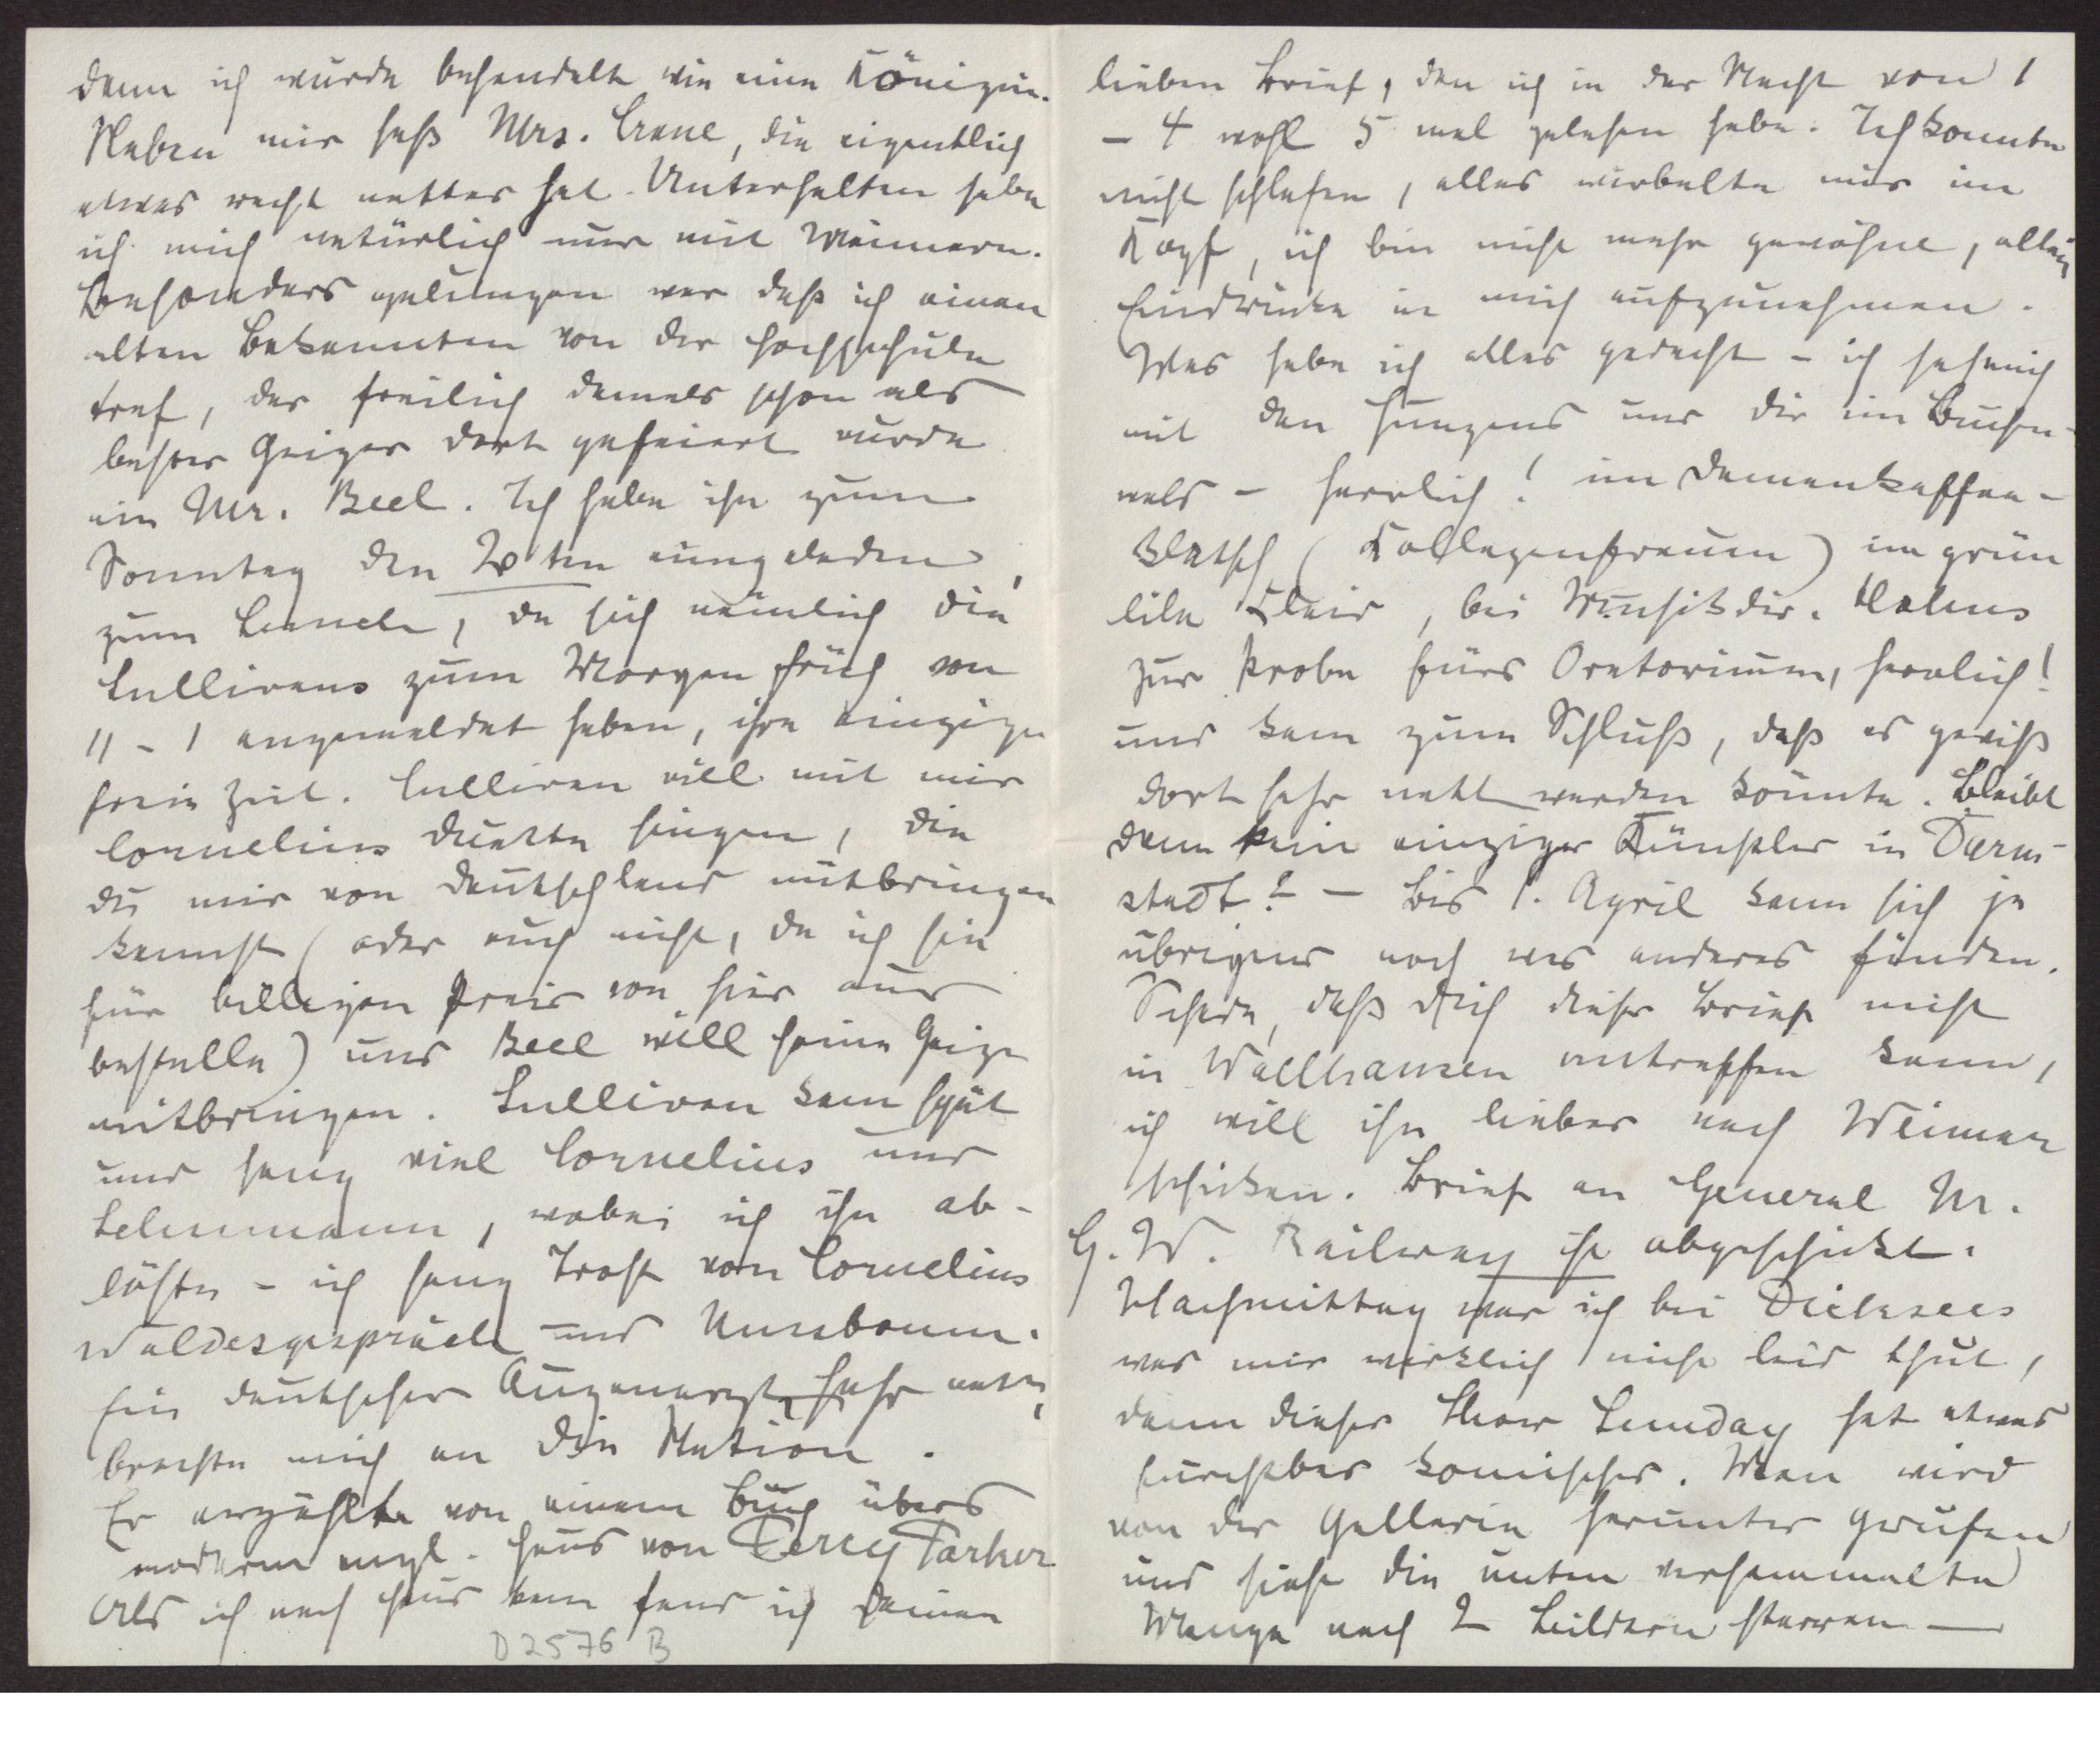 denn ich wurde behandelt wie eine Königin.
Neben mir saß Mrs. Crane, die eigentlich
etwas recht nettes hat. Unterhalten habe
ich mich natürlich nur mit Männern.
Besonders gelungen war daß ich einen
alten Bekannten von der Hochschule
traf, der freilich damals schon als
bester Geiger dort gefeiert wurde
ein Mr. Beel. Ich habe ihn zum
Sonntag den 20ten eingeladen,
zum Lunch, da sich nämlich die
Sullivans zum Morgen früh von
11 - 1 angemeldet haben, ihre einzige
freie Zeit. Sullivan will mit mir
Cornelius Duette singen, die
du mir von Deutschland mitbringen
kannst (oder auch nicht, da ich sie
für billigen Preis von hier aus
bestelle) und Beel will seine Geige
mitbringen. Sullivan kam spät
und sang viel Cornelius und
Lehnmann, wobei ich ihn ab-
löste - ich sang Trost von Cornelius
Waldesgespräch und Nussbaum.
Ein deutscher Augenarzt, sehr nett,
brachte mich an die Station.
Er erzählte von einem Buch übers
moderne engl. Haus von Percy Parker
Als ich nach Haus kam fand ich Deinen
D 2576 B
lieben Brief, den ich in der Nacht von 1
- 4 wohl 5 mal gelesen habe. Ich konnte
nicht schlafen, alles wirbelte mir im
Kopf, ich bin nicht mehr gewöhnt, allein
Eindrücke in mich aufzunehmen.
Was habe ich alles gedacht - ich sah mich
mit den Jungens und dir im Buchen-
wald - herrlich! im Damenkaffee-
klatsch (Kollegenfrauen) im grün
lila Kleid, bei Musikdir. 
zur Probe fürs Oratorium, herrlich!
und kam zum Schluß, daß es gewiß
dort sehr nett werden könnte. Bleibt
denn kein einziger Künstler in Darm-
stadt? - Bis 1. April kann sich ja
übrigens noch was anderes finden.
Schade, daß dich dieser Brief nicht
in Wallhausen antreffen kann,
ich will ihn lieber nach Weimar
schicken. Brief an General M.
G. W. Railway ist abgeschickt.
Nachmittag war ich bei Dicksees
was mir wirklich nicht leid thut,
denn dieser Show Sunday hat etwas
furchtbar komisches. Man wird
von der Gallerie herunter gerufen
und sieht die unten versammelte
Menge nach 2 Bildern starren —